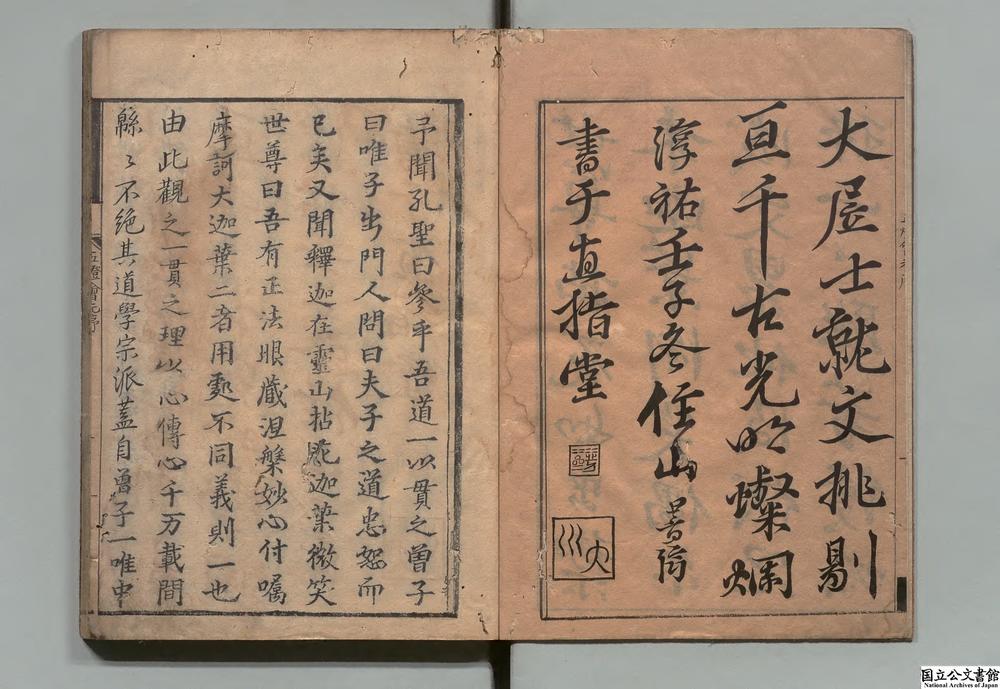 大居士就文挑剔
亘千古光明燦爛
淳祐壬子冬住山普濟
書于直指堂
大川
予聞孔聖曰參乎吾道一以貫之曾子
曰唯子出門人問曰夫子之道忠恕而
已矣又聞釋迦在靈山拈花迦葉微笑
世尊曰吾有正法眼藏涅槃妙心付囑
摩訶大迦葉二者用處不同義則一也
由此觀之一貫之理以心傳心千万載間
緜〻不絶其道學宗派蓋自曾子一唯中
五燈會元序
国立公文書館
National Archives of Japan